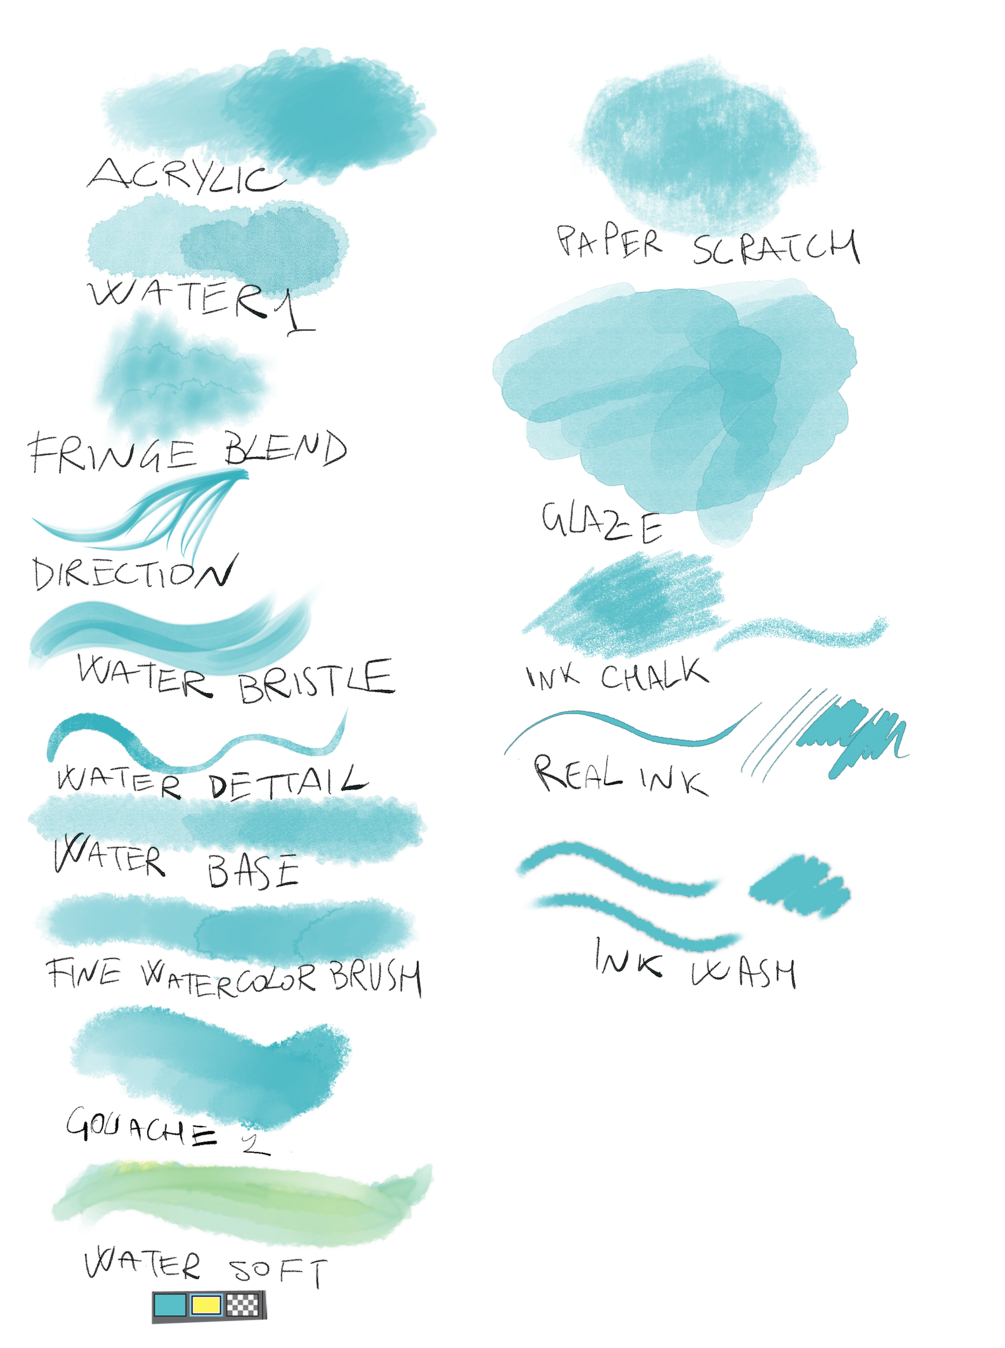 ACRYLIC
WATER 1
FRINGE BLEND
DIRECTION
WATER BRISTLE
WATER DETTAIL
WATER BASE
FINE WATERCOLOR BRUSH
GOUACHE 2
WATER SOFT
PAPER SCRATCH
GLAZE
INK CHALK
REAL INK
INK WASH